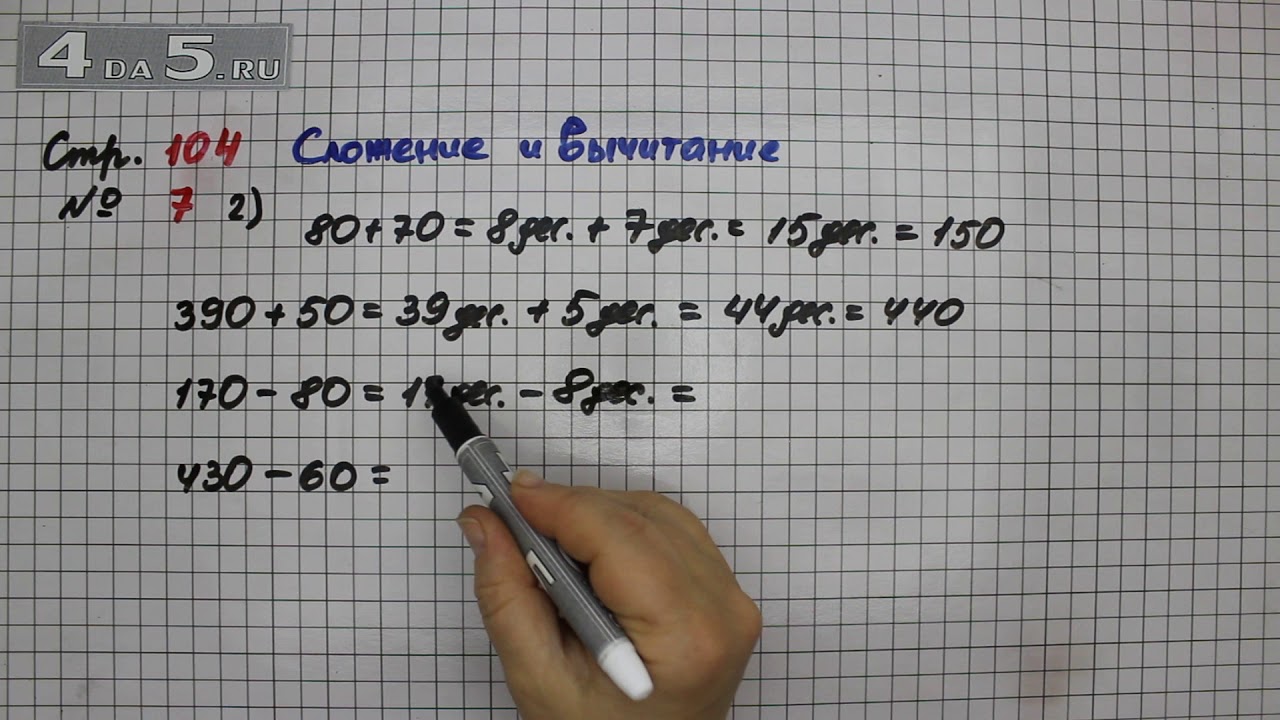 4DA5.RU
Стр. 104 Сложение и вычитание
№ 7 2)
80+70=8дес.+7дес.=15дес.=150
390+50=39дес.+5дес.=44дес.=440
170-80= -8дес.=
430-60=